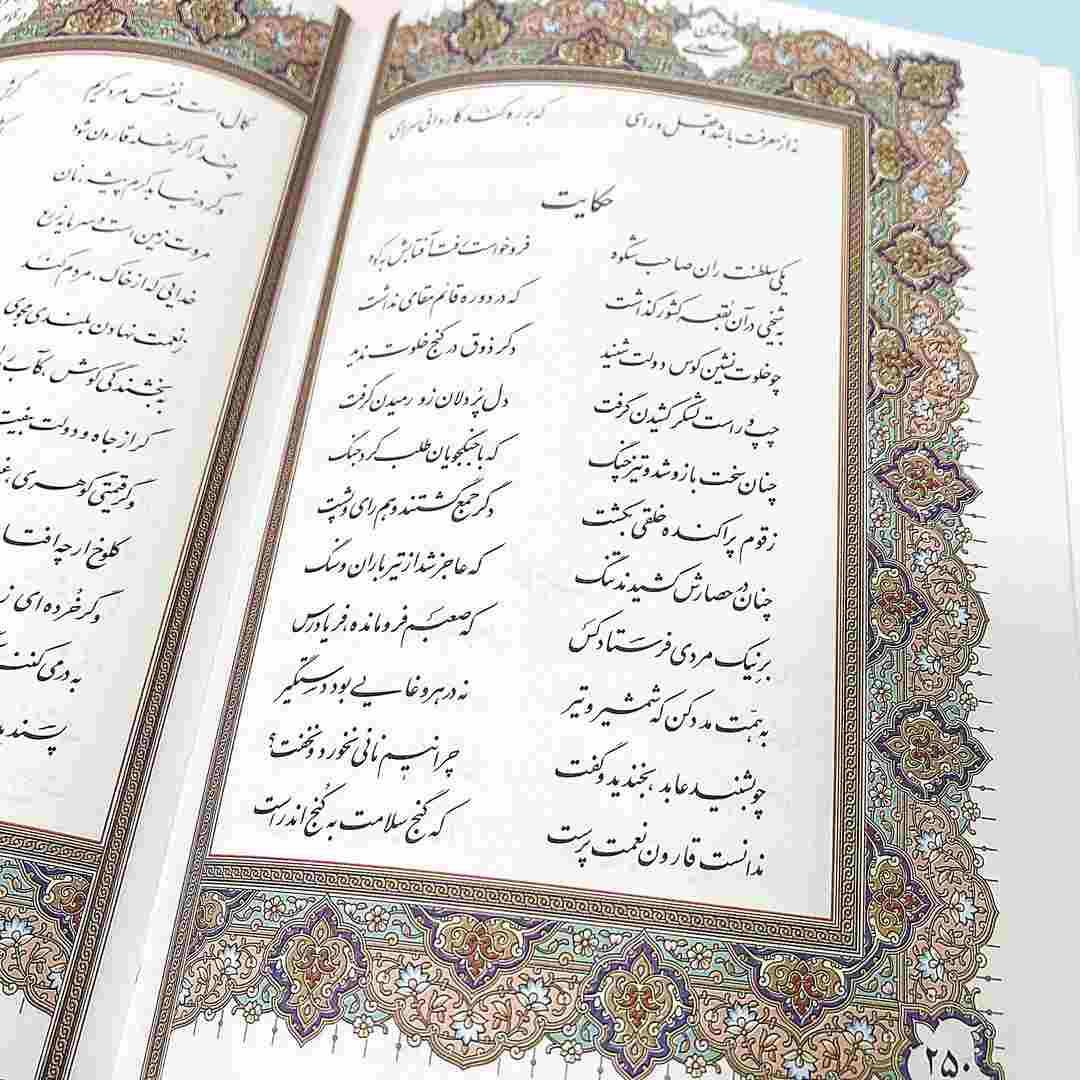 بوستان سعدی
نه از معرفت باشد و عقل و رای که بر ره کند کاروانی سرای
حکایت
یکی سلطنت ران صاحب شکوه فرو خواست رفت آفتابش به کوه
به شیخی در آن بُقعه کشور گذاشت که در دوره قائم مقامی نداشت
چو خلوت نشین کوس دولت شنید دگر ذوق در کنج خلوت ندید
چپ و راست لشکر کشیدن گرفت دل پُردلان زو رمیدن گرفت
چنان سخت بازو شد و تیز چنگ که با جنگجویان طلب کرد جنگ
ز قوم پراکنده خلقی بکشت دگر جمع گشتند و هم رای و پشت
چنان در حصارش کشیدند تنگ که عاجز شد از تیرباران و سنگ
برِ نیک مردی فرستاد کس که صعبم فرو مانده، فریادرس
به همّت مدد کن که شمشیر و تیر نه در هر وغایی بود دستگیر
چو بشنید عابد بخندید و گفت چرا نیم نانی نخورد و نخفت؟
ندانست قارون نعمت پرست که گنج سلامت به کُنج اندر است
۲۵۰
کمال است در نفس مرد کریم
چندار اگر سفله قارون شود
وگر درنیابد کرم پیشه نان
مروت زمین است و سرمایه زرع
خدایی که از خاک، مردم کند
ز نعمت نهادن بلندی مجوی
به بخشندگی کوش، کآب
گر از جاه و دولت بیفتد
وگر قیمتی گوهری
کلوخ ار چه افتاده
وگر خُرده ای ز
به در می کنند
پسندیده